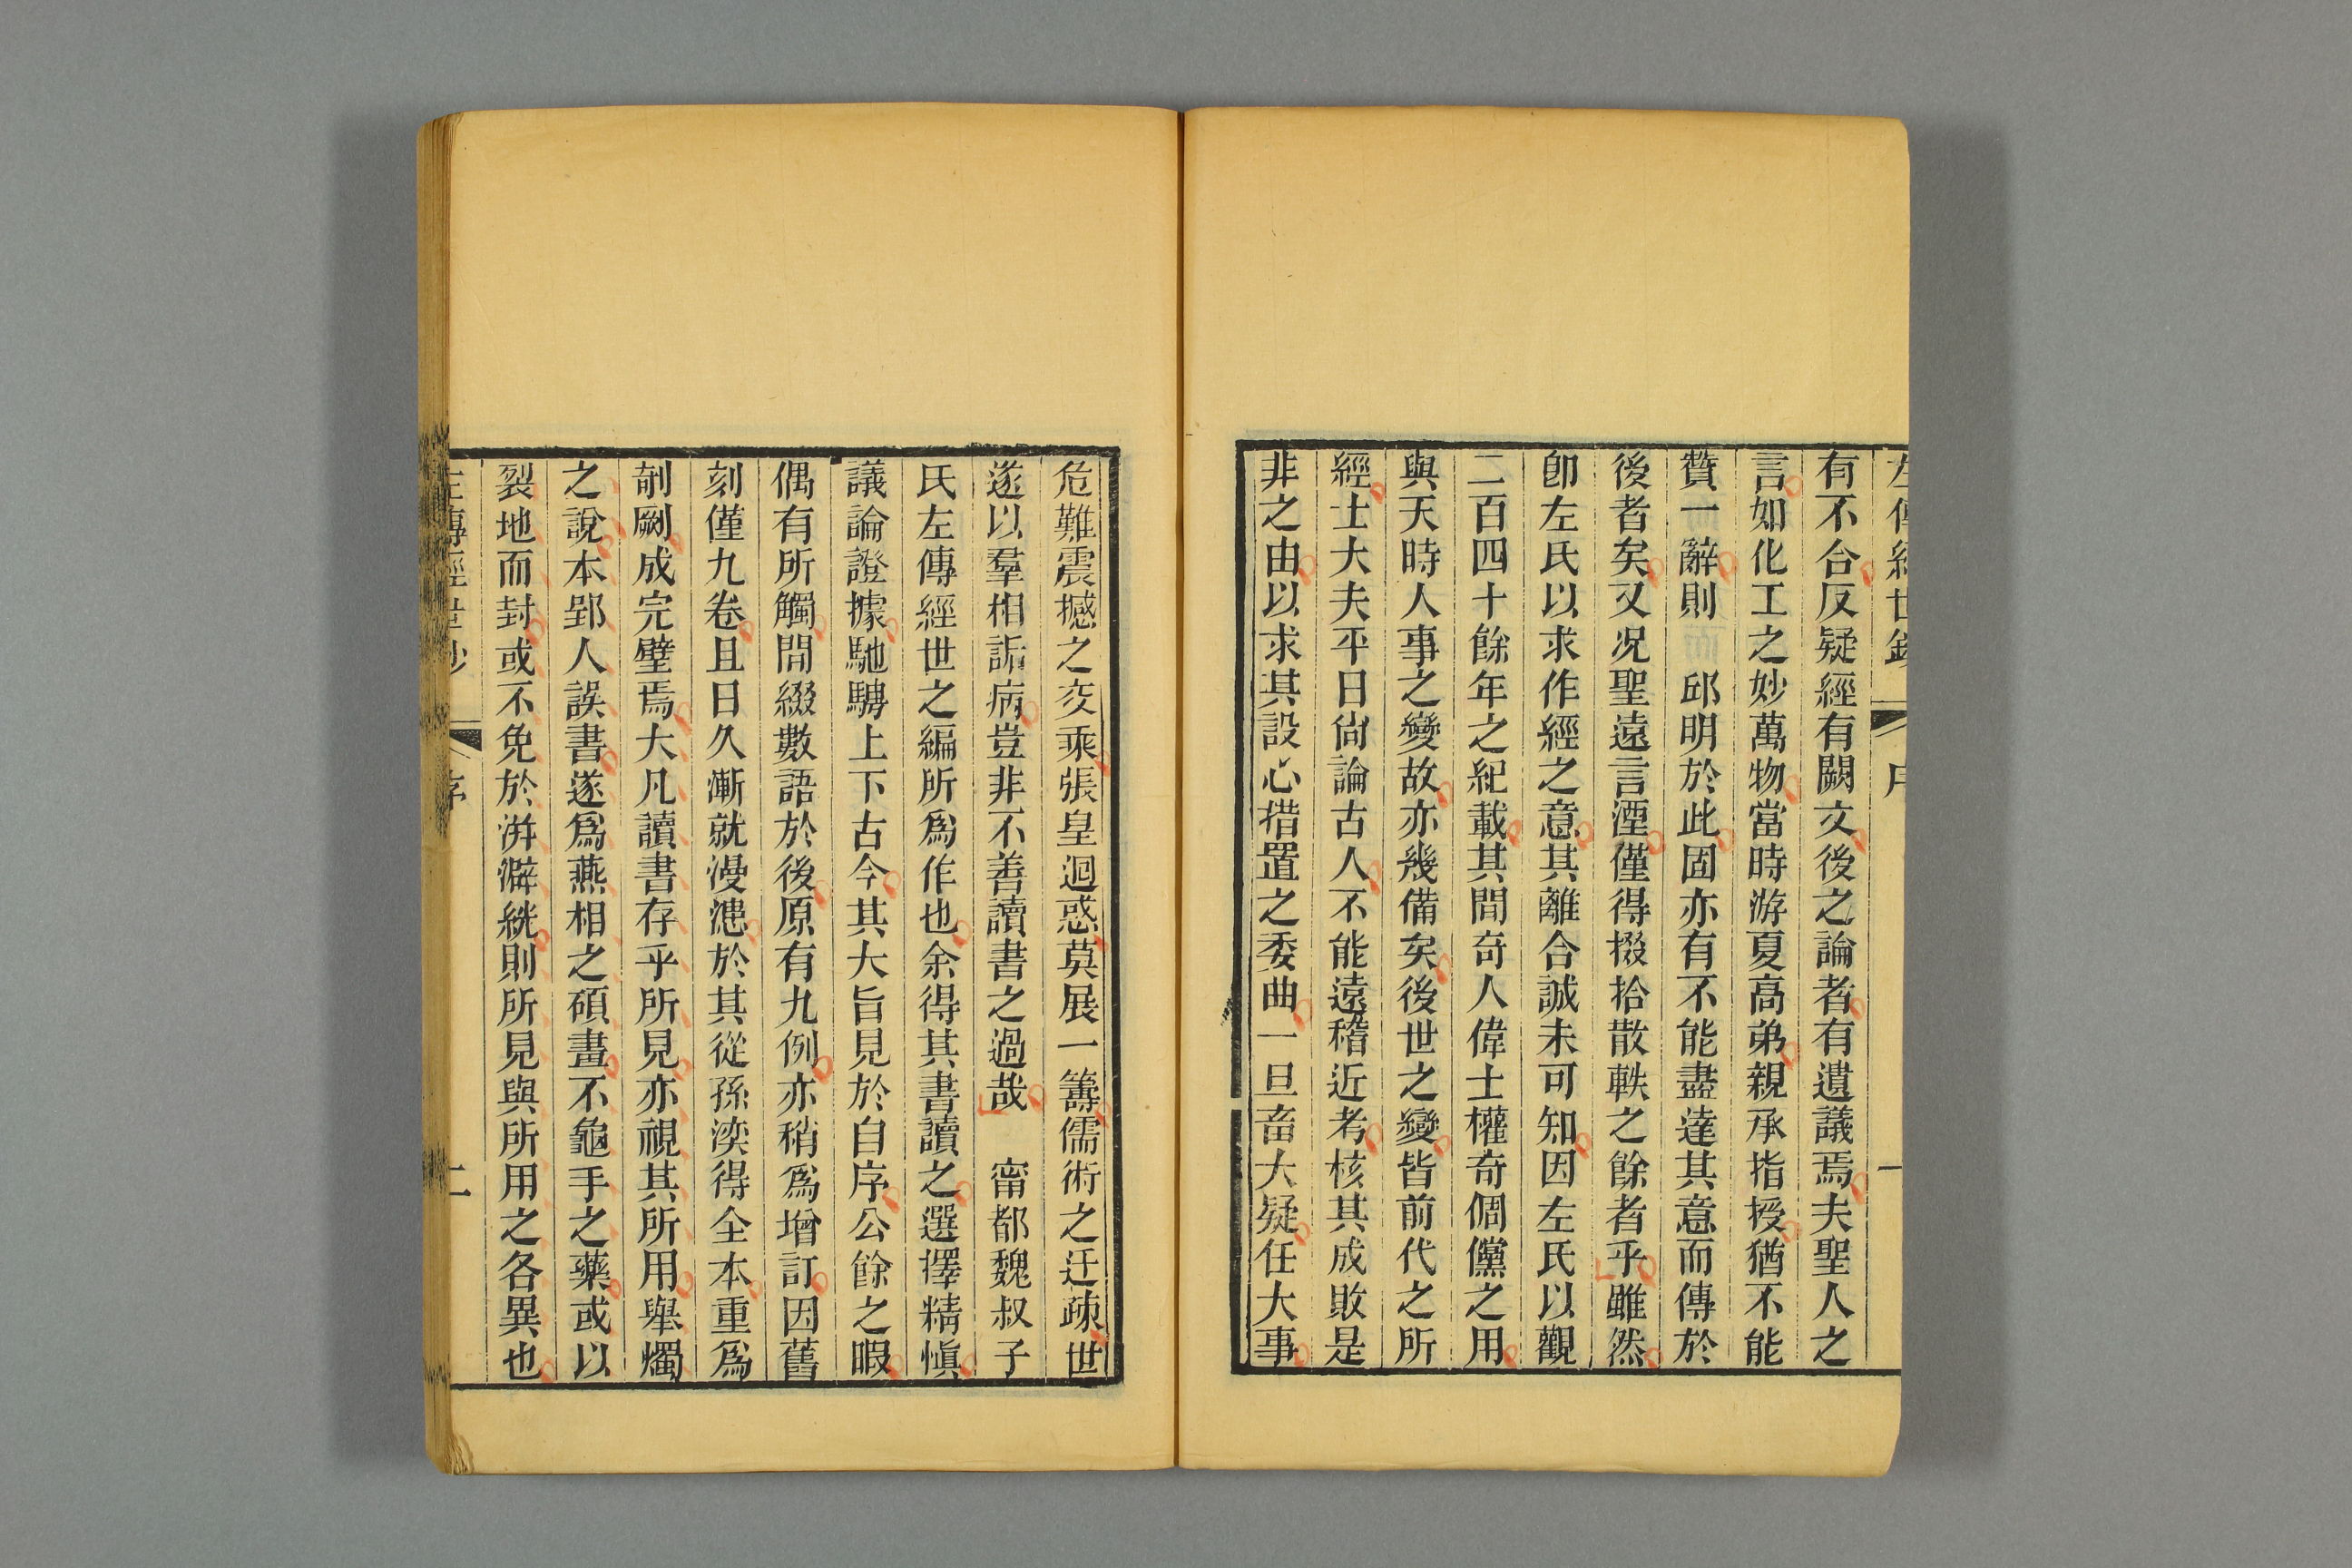 左傳經世鈔 序 一
有不合反疑經有闕文後之論者有遺議焉夫聖人之
言如化工之妙萬物當時游夏高弟親承指授猶不能
贊一辭則 邱明於此固亦有不能盡達其意而傳於
後者矣又况聖遠言湮僅得掇拾散軼之餘者乎雖然
卽左氏以求作經之意其離合誠未可知因左氏以觀
二百四十餘年之紀載其間奇人偉士權奇倜儻之用
與天時人事之變故亦幾備矣後世之變皆前代之所
經士大夫平日尙論古人不能遠稽近考核其成敗是
非之由以求其設心措置之委曲一旦畜大疑任大事
危難震撼之交乘張皇迴惑莫展一籌儒術之迂疎世
遂以羣相詬病豈非不善讀書之過哉 甯都魏叔子
氏左傳經世之編所爲作也余得其書讀之選擇精愼
議論證據馳騁上下古今其大旨見於自序公餘之暇
偶有所觸間綴數語於後原有九例亦稍爲增訂因舊
刻僅九卷且日久漸就漫漶於其從孫湙得全本重爲
剞劂成完璧焉大凡讀書存乎所見亦視其所用舉燭
之說本郢人誤書遂爲燕相之碩畫不龜手之藥或以
裂地而封或不免於洴澼絖則所見與所用之各異也
左傳經世鈔 序 二